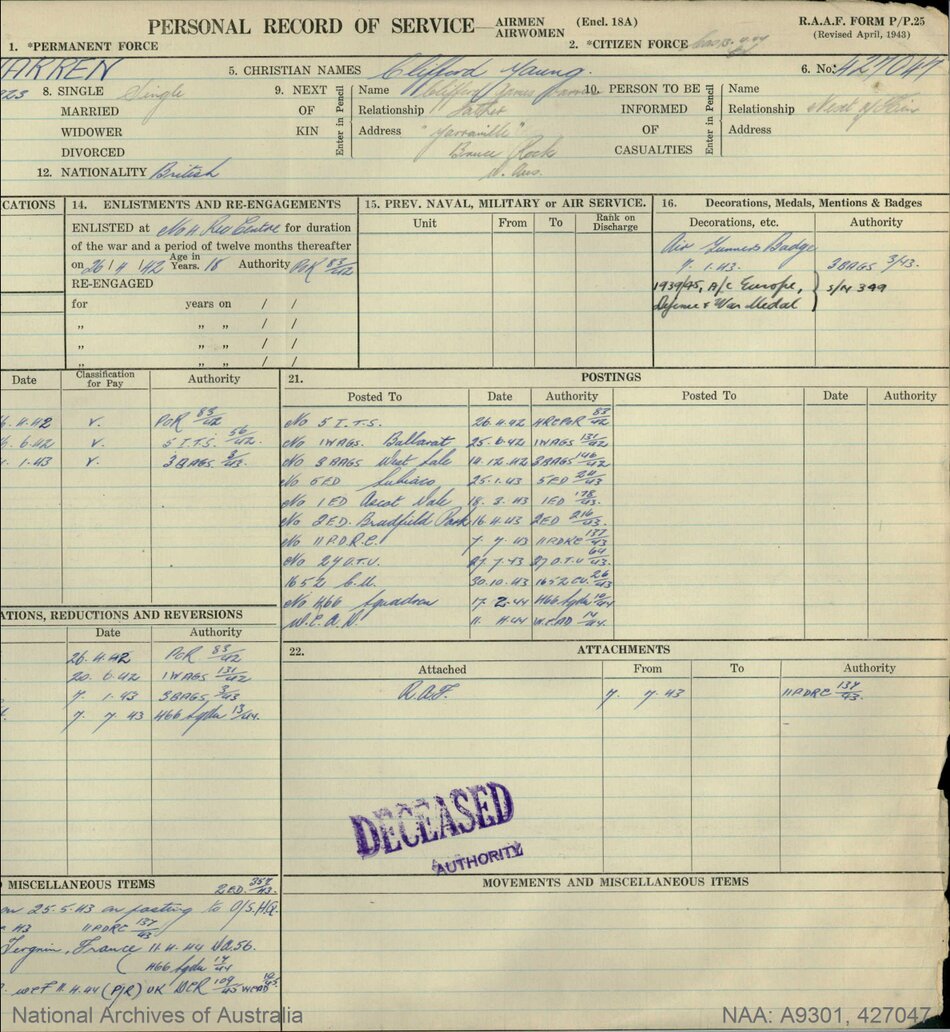 PERSONAL RECORD OF SERVICE— AIRMEN AIRWOMEN (Encl. 18A) R.A.A.F. FORM P/P.25
(Revised April, 1943)
1. *PERMANENT FORCE 2. *CITIZEN FORCE
WARREN 5. CHRISTIAN NAMES Clifford Young. 6. No. 427047
223 8. SINGLE Single 9. NEXT OF KIN Enter in Pencil Name Clifford James Warren 10. PERSON TO BE INFORMED OF CASUALTIES Enter in Pencil Name
MARRIED Relationship Father Relationship Next of Kin
WIDOWER Address "Yarraville" Address
DIVORCED Bruce Rock
12. NATIONALITY British W. Aus.
CATIONS 14. ENLISTMENTS AND RE-ENGAGEMENTS 15. PREV. NAVAL, MILITARY or AIR SERVICE. 16. Decorations, Medals, Mentions & Badges
ENLISTED at No 4 Rec Centre for duration Unit From To Rank on Discharge Decorations, etc. Authority
of the war and a period of twelve months thereafter Air Gunners Badge
on 26/4/42 Age in Years. 18 Authority POR 83/42 7.1.43. 3BAGS 3/43.
RE-ENGAGED 1939/45, A/C Europe, S/N 399
for years on / / Defence & War Medal
„ „ „ / /
„ „ „ / /
„ „ „ / /
Date Classification for Pay Authority 21. POSTINGS
Posted To Date Authority Posted To Date Authority
6.4.42 v. POR 83/42 No 5 I.T.S. 26.4.42 4RCPOR 83/42
6.42 v. 5 I.T.S. 56/42. No 1WAGS. Ballarat 25.6.42 1WAGS 131/42
1.43 v. 3 BAGS 3/43. No 3 BAGS West Sale 14.12.42 3BAGS 146/42
No 5ED Subiaco 25.1.43 5ED 24/43
No 1ED Ascot Vale 18.3.43 1ED 178/43.
No 2ED. Bradfield Park 16.4.43 2ED 216/43.
No 11 P.D.R.C. 7.7.43 11PDRC 137/43
No 27 O.T.U. 27.7.43 27 O.T.U 64/43.
1652 C.U. 30.10.43 1652CU. 26/43
No 466 Squadron 17.2.44 466 Sqdn 10/44
W.E.A.D. 11.4.44 W.EAD 14/44.
ATIONS, REDUCTIONS AND REVERSIONS
Date Authority
26.4.42 POR 83/42
20.6.42 1WAGS 131/42
7.1.43 3BAGS 3/43
7.7.43 466 Sqdn 13/44.
22. ATTACHMENTS
Attached From To Authority
R.A.F. 7.7.43 11PDRC 137/43.
DECEASED
AUTHORITY
MISCELLANEOUS ITEMS 2ED. 357/43. MOVEMENTS AND MISCELLANEOUS ITEMS
on 25.5.43 on posting to O/S.H.Q.
43 11PDRC 137/43
Tergnier, France 11.4.44
466 Sqdn 14/44
wef 11.4.44 (PJR) UK DCR 109/45 WEAD
National Archives of Australia NAA: A9301, 427047